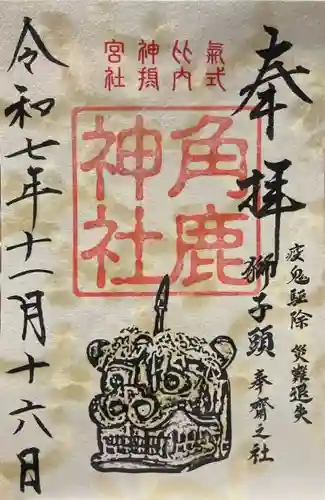 奉拝
疫鬼駆除 災難退失
獅子頭 奉齋之社
氣式
比内
神摂
宮社
角鹿
神社
令和七年十一月十六日